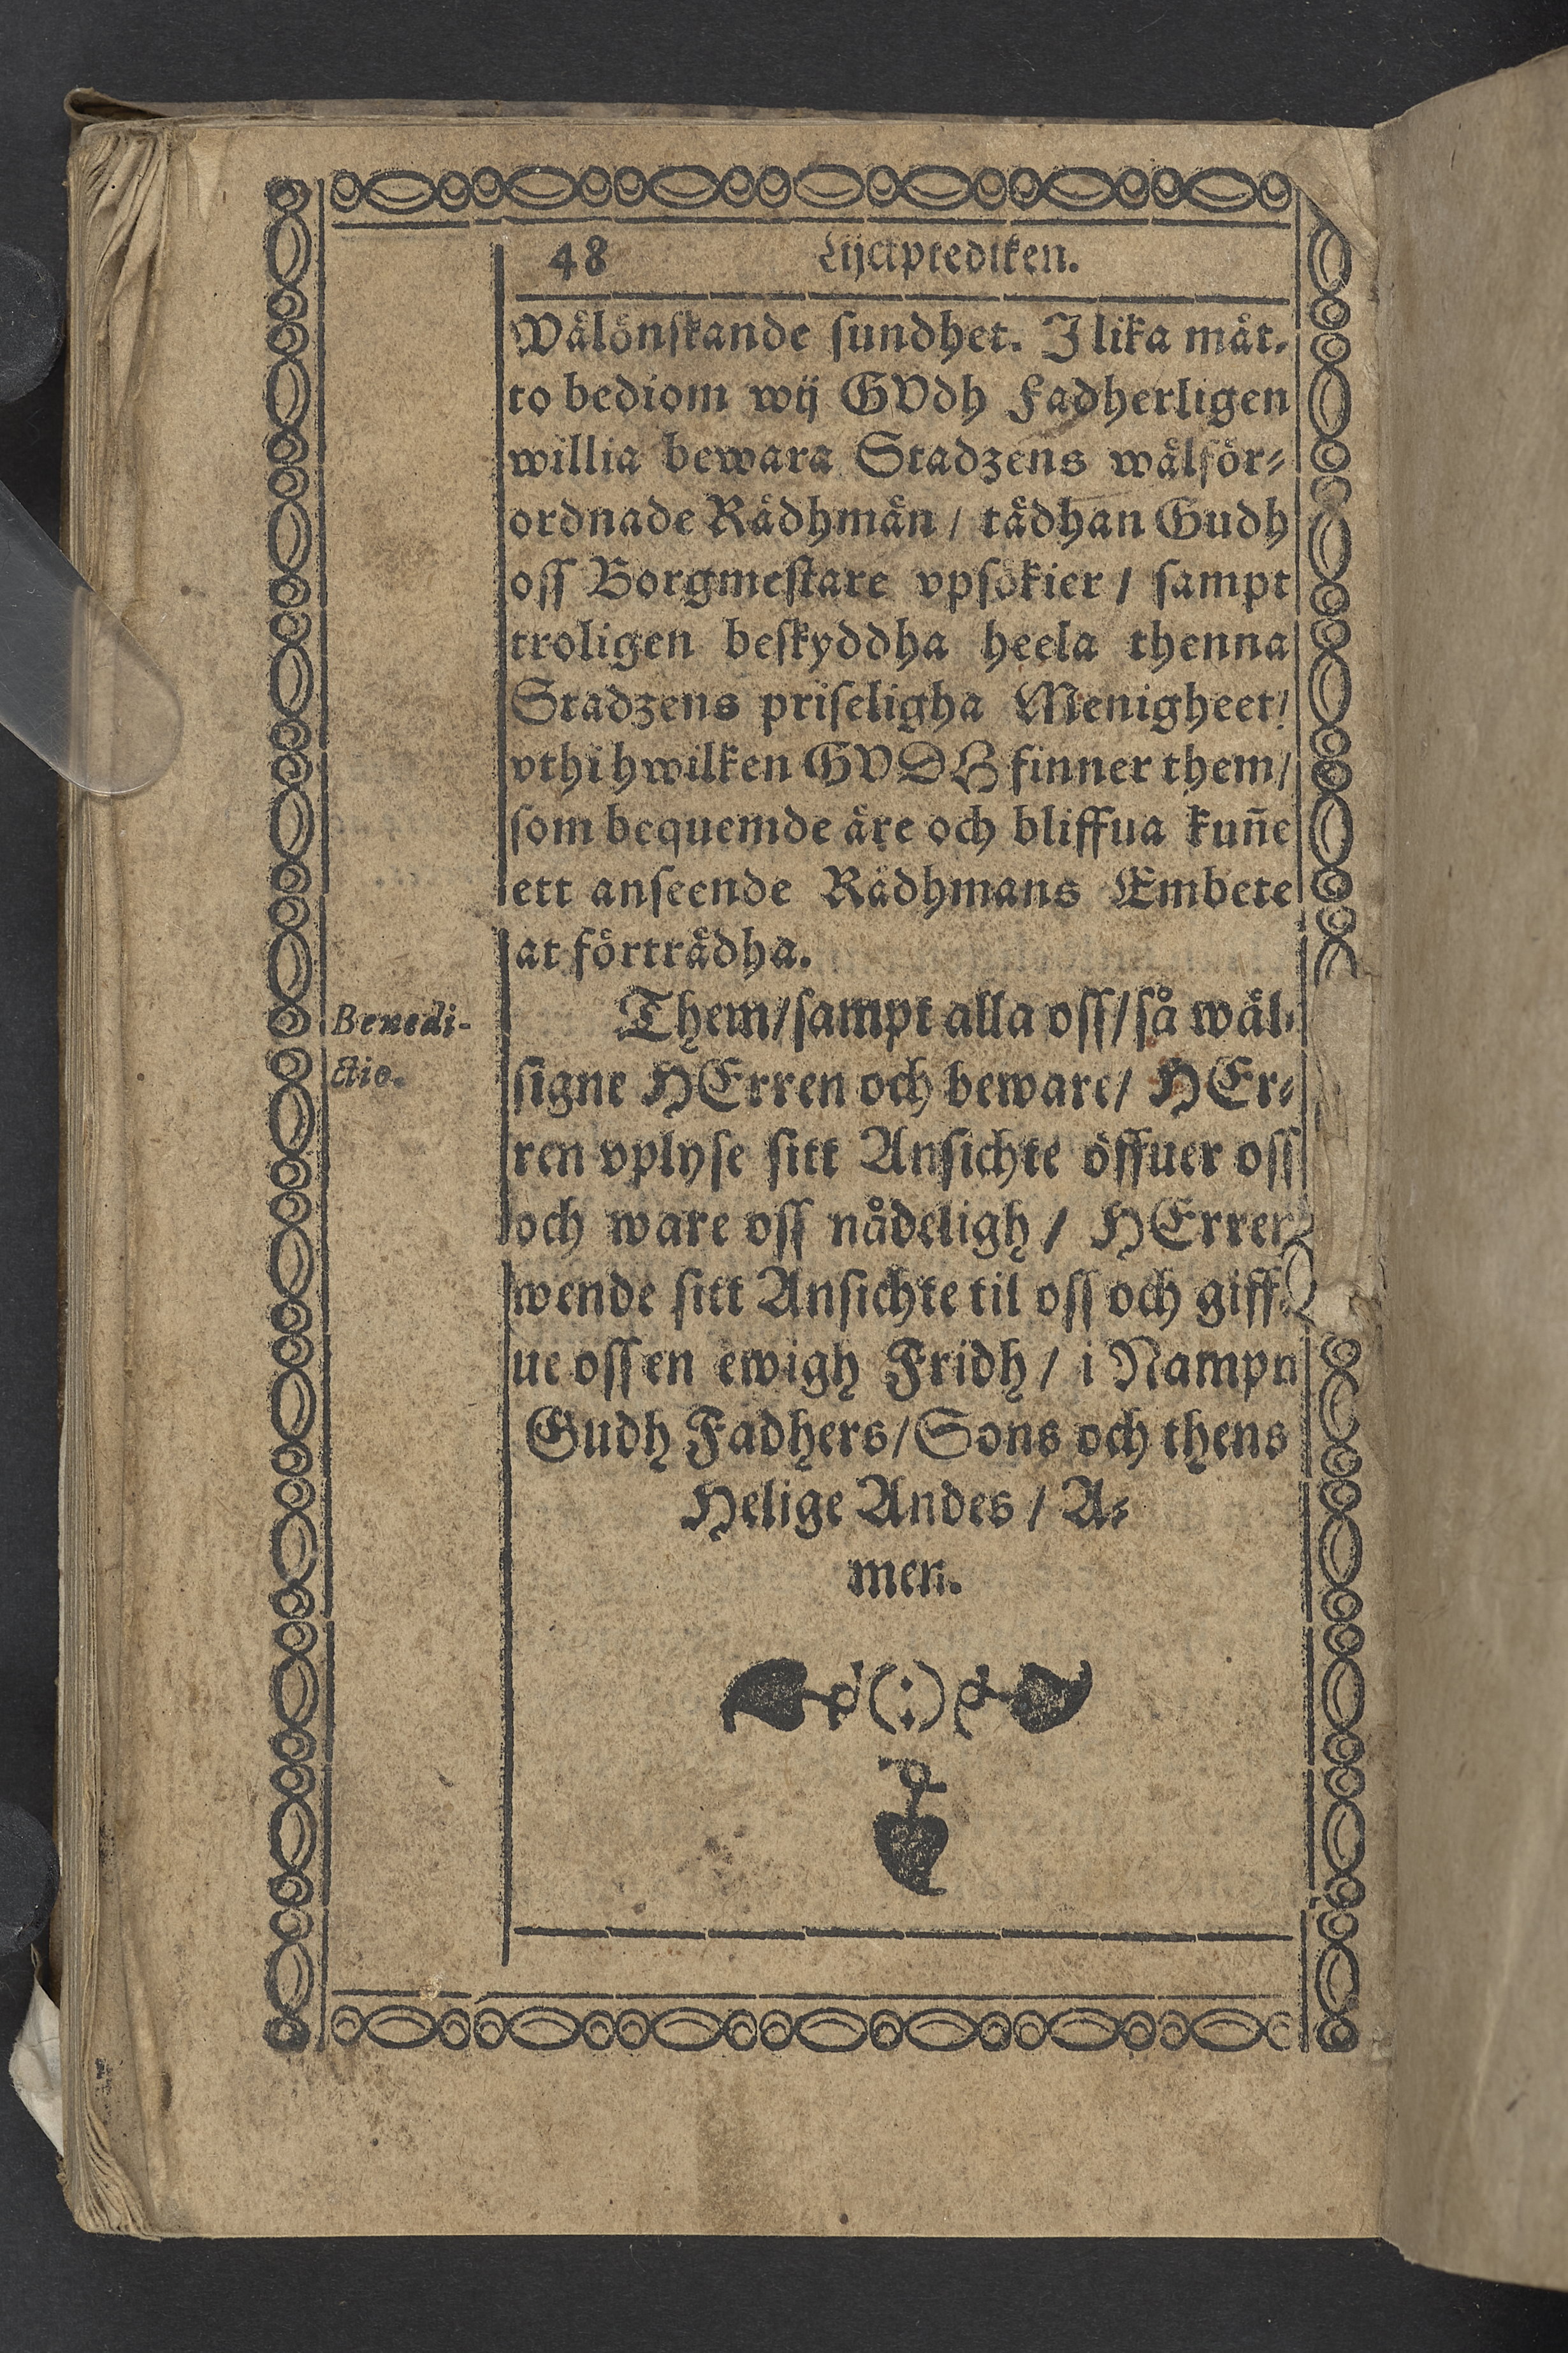 48 Lijckprediken.
Wälönskande sundhet. J lika måt-
to bediom wij GVdh Fadherligen
willia bewara Stadzens wälför-
ordnade Rådhmän / tädhan Gudh
oss Borgmestare vpsökier / sampt
troligen beskyddha heela thenna
Stadzens priseligha Menigheet/
vthi hwilken GVDH finner them/
som bequemde äre och bliffua kuñe
ett anseende Rådhmans Embete
at förträdha.
Them/sampt alla oss/så wäl-
Benedi-
ctio.
signe HErren och beware/ HEr-
ren vplyse sitt Ansichte öffuer oss
och ware oss nådeligh / HErren
wende sitt Ansichte til oss och giff-
ue oss en ewigh Fridh / i Nampn
Gudh Fadhers/Sons och thens
Helige Andes / A-
men.
(:)